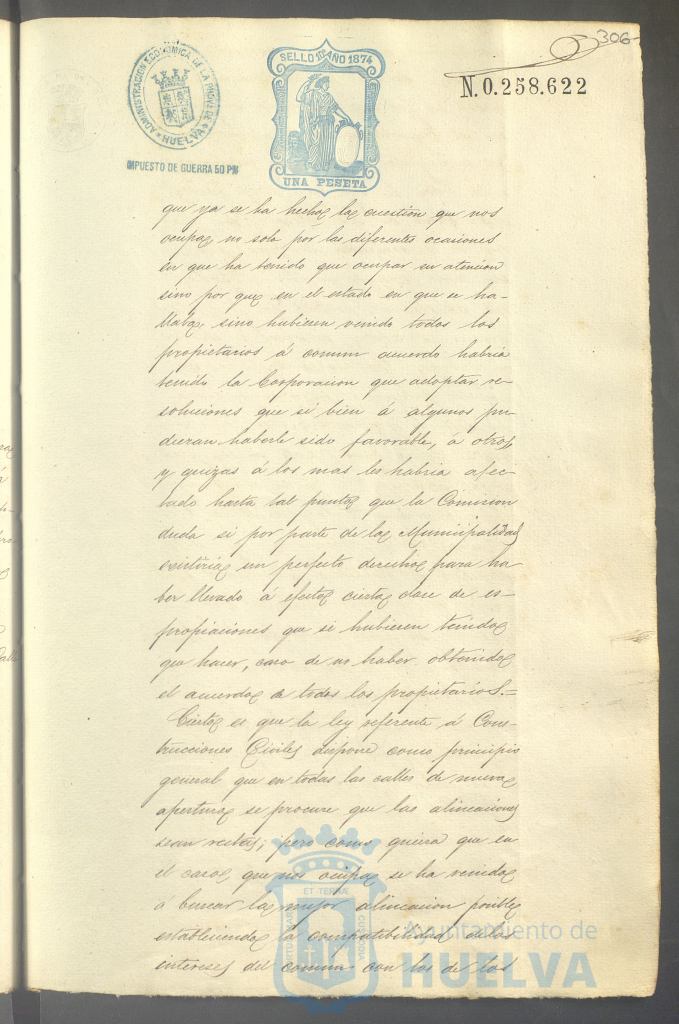 306
ADMINISTRACION ECONOMICA DE LA PROVA. DE HUELVA
SELLO 10º AÑO 1874
UNA PESETA
N.0.258.622
IMPUESTO DE GUERRA 50 PM
que ya se ha hecho la cuestion que nos
ocupa no solo por las diferentes ocasiones
en que ha tenido que ocupar su atencion
sino por que en el estado en que se ha-
llaba, sino hubiesen venido todos los
propietarios á comun acuerdo habria
tenido la Corporacion que adoptar re-
soluciones que si bien á algunos pu-
dieran haberle sido favorable, á otros
y quizas á los mas les habria afec-
tado hasta tal punto que la Comision
duda si por parte de la Municipalidad
existiria un perfecto derecho para ha-
ber llevado á efecto cierta clase de es-
propiaciones que se hubiesen tenido
que hacer, caso de no haber obtenido
el acuerdo de todos los propietarios.=
Cierto es que la ley referente á Cons-
trucciones Civiles dispone como principio
general que en todas las calles de nueva
apertura se procure que las alineaciones
sean rectas; pero como quiera que en
el caso que nos ocupa se ha venido
á buscar la mejor alineacion posible
estableciendo la compatibilidad de los
intereses del comun con los de los
ET TERRÆ
Ayuntamiento de
HUELVA